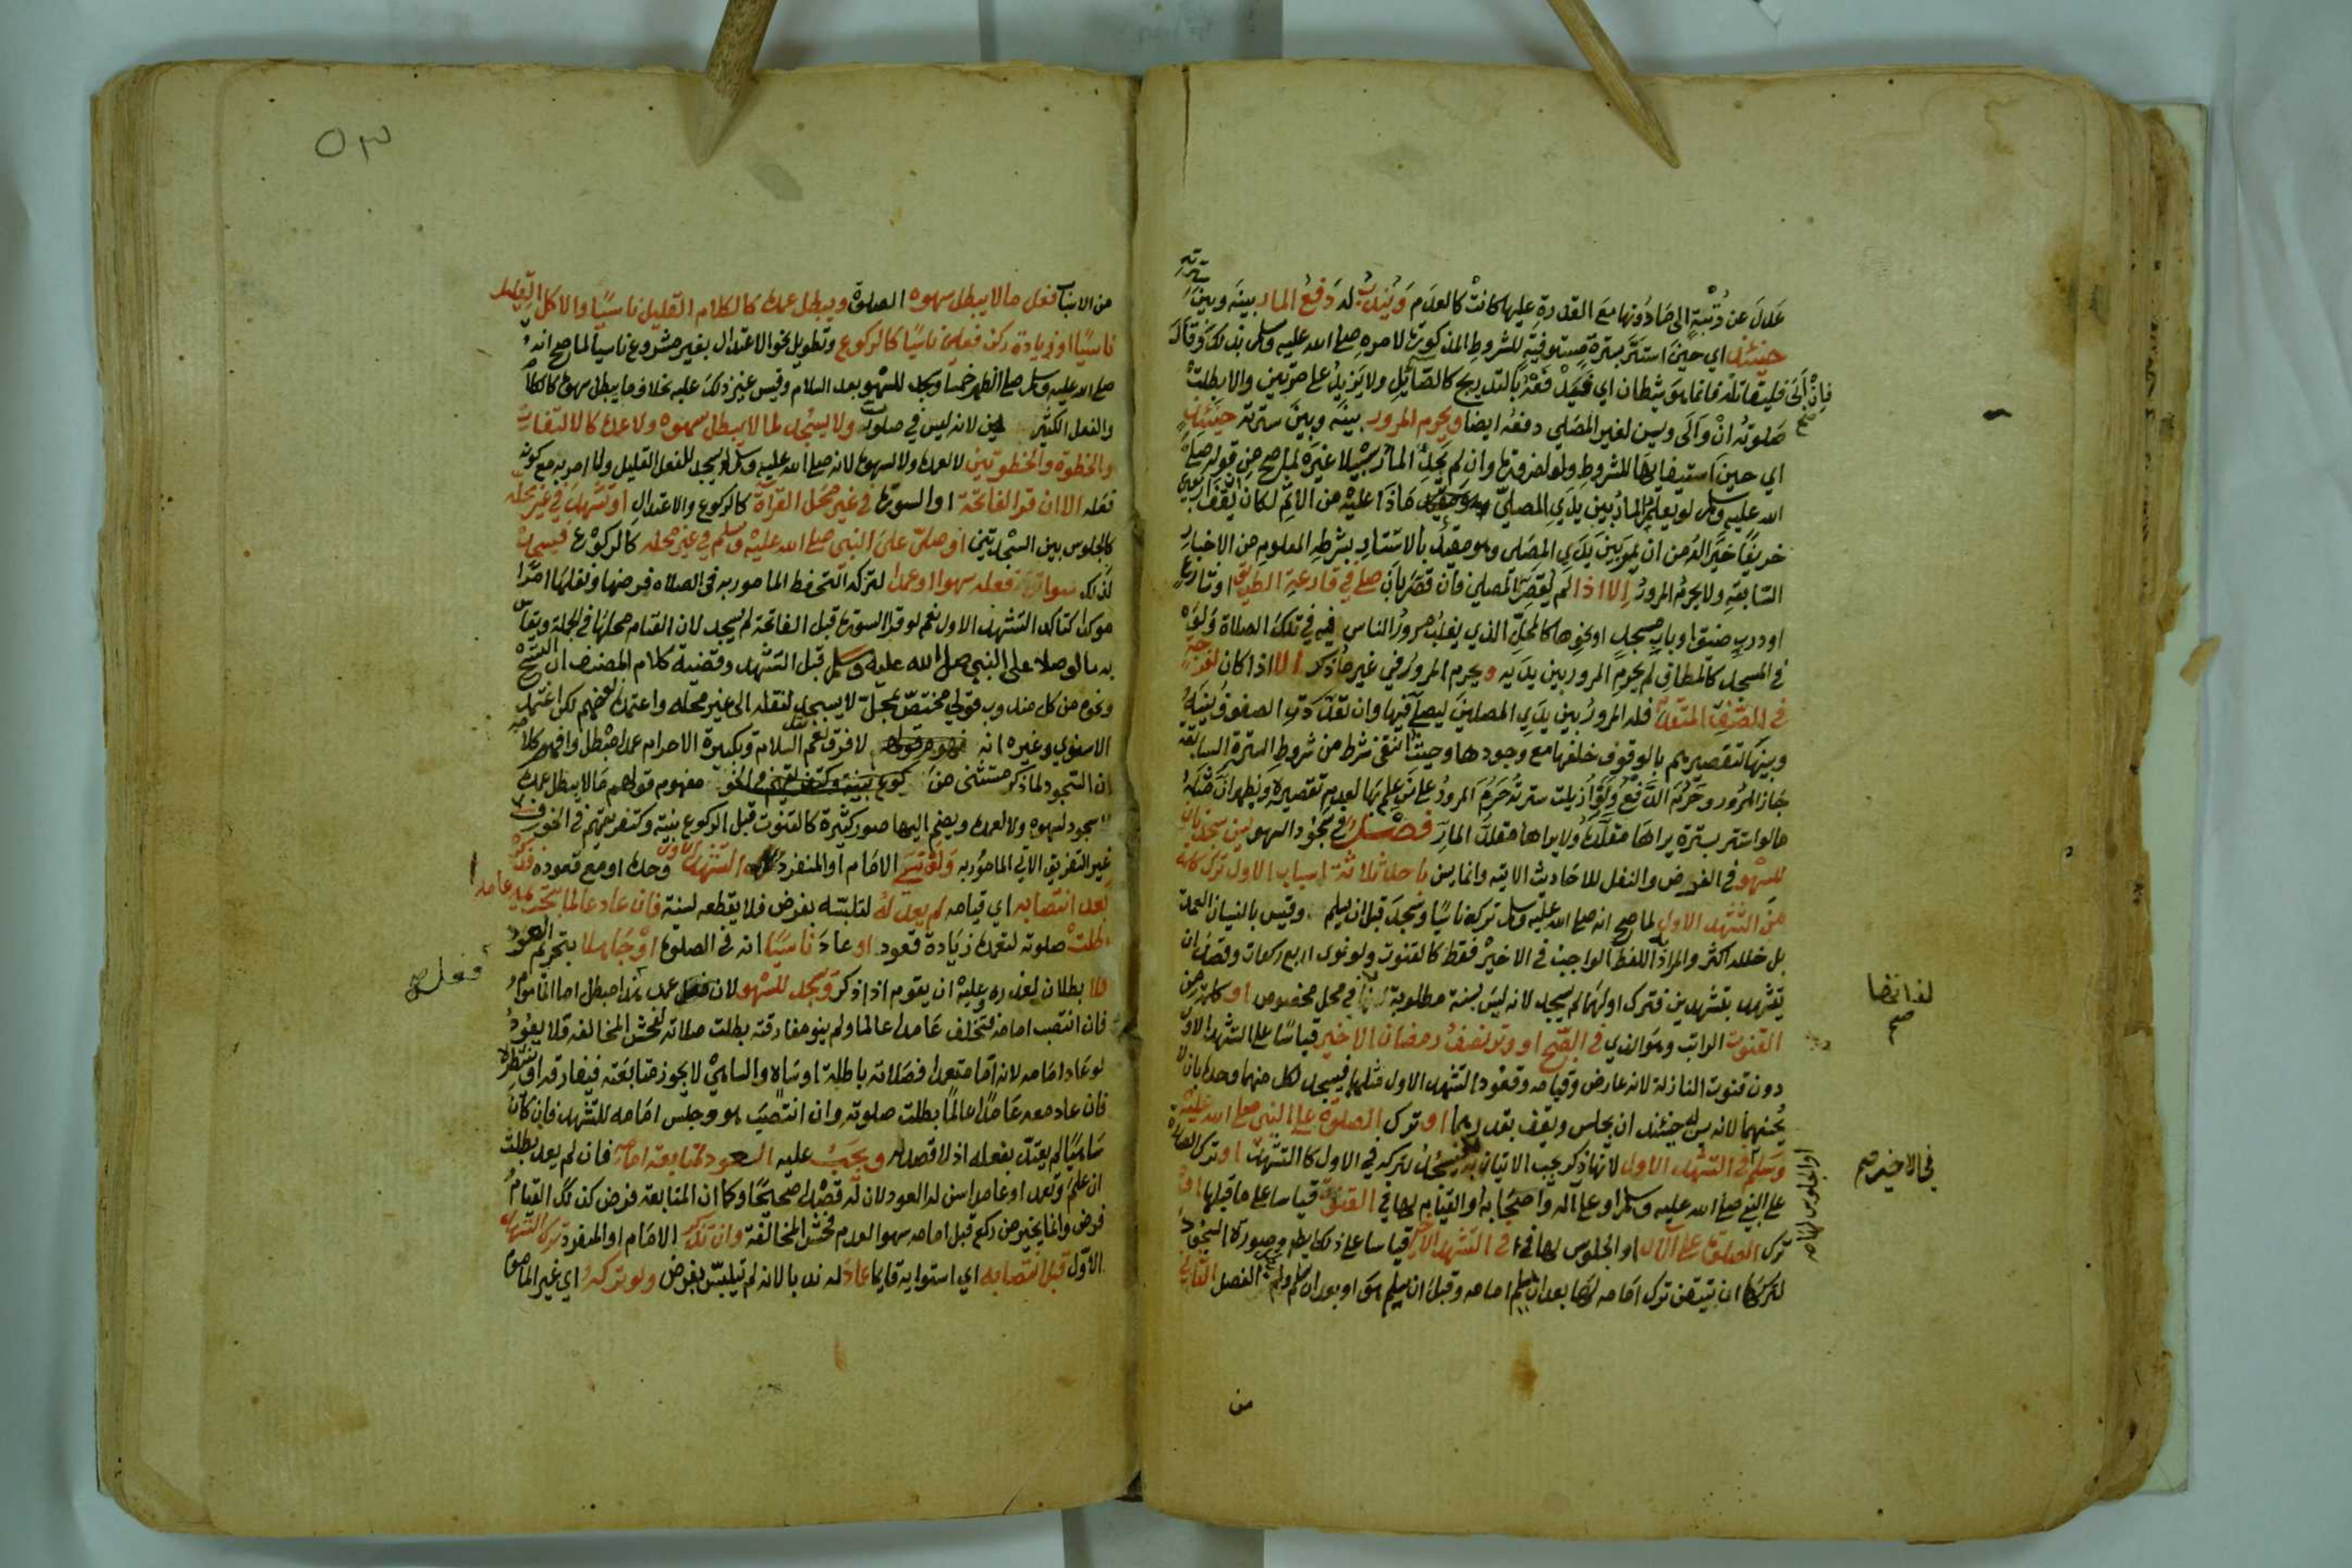 عدل عن رتبة الى ما دونها مع القدرة عليها كانت كالعدم ويندب له دفع المار بينه وبين سترته
حينئذ اي حين استتر بسترة مستوفية للشروط المذكورة لامره صلى الله عليه وسلم بذلك وقال
فان ابى فليقاتله فانما هو شيطان اي بالتدريج كالصائل ولا يزيد على مرتين والا بطلت
صلوته ان والى وسن لغير المصلي دفعه ايضا ويحرم المرور بينه وبين سترته حينئذ
اي حين استيفائها للشروط ولو لضرورة وان لم يجد المار سبيلا غيره لما صح من قوله صلى
الله عليه وسلم لو يعلم المار بين يدي المصلي ماذا عليه من الاثم لكان ان يقف اربعين
خريفا خير اله من ان يمر بين يدي المصلى وهو مقيد بالاستتار بشرطه المعلوم من الاخبار
السابقة ولا يحرم المرور الا اذا لم يقصر المصلي فان قصر بان صلى في قارعة الطريق او شارع
او درب ضيق او باب مسجد او نحوها كالمحل الذي يغلب مرور الناس فيه في تلك الصلاة ولو
في المسجد كالمطاف لم يحرم المرور بين يديه ويحرم المرور في غير ما ذكر الا اذا كان لفرجة
في الصف المتقدم فله المرور بين يدي المصلين ليصل فيها وان تعددت الصفوف بينه
وبينها لتقصيرهم بالوقوف خلفها مع وجودها وحيث انتفى شرط من شروط السترة السابقة
جاز المرور وحرم الدفع ولو ازيلت سترته حرم المرور على من علم بها لعدم تقصيره ويظهر ان مثله
ما لو استتر بسترة يراها مقلده ولا يراها مقلد المار فصل في سجود السهو يسن سجدتان
للسهو في الفرض والنفل للاحاديث الاتية وانما يسن باحد ثلاثة اسباب الاول ترك كلمة
من التشهد الاول لما صح انه صلى الله عليه وسلم تركه ناسيا وسجد قبل ان يسلم وقيس بالنسيان العمد
بل خلله اكثر والمراد اللفظ الواجب في الاخير فقط كالقنوت ولو نوى اربع ركعات وقصد ان
يتشهد بتشهدين فترك اولهما لم يسجد لانه ليس سنة مطلوبة لذاتها في محل مخصوص او كلمة من
القنوت الراتب وهو الذي في الصبح او وتر نصف رمضان الاخير قياسا على التشهد الاول
دون قنوت النازلة لانه عارض وقيامه وقعود التشهد الاول مثلهما فيسجد لكل منهما وحده بان لا
يحسنهما لانه يسن له حينئذ ان يجلس ويقف بقدرهما او ترك الصلوة على النبي صلى الله عليه
وسلم في التشهد الاول لانها ذكر يجب الاتيان به فيسجد لتركه في الاول كالتشهد او ترك الصلاة
على النبي صلى الله عليه وسلم او على اله واصحابه او القيام لها في القنوت قياسا على ما قبلها او
ترك الصلوة على الال او الجلوس لها في التشهد الاخير قياسا على ذلك ايضا وصورة السجود
لتركها ان يتيقن ترك امامه لها بعد ان يسلم امامه وقبل ان يسلم هو او بعد ان سلم ولم الفصل الثاني
لفذانضا
صح
في الاخير صح
او الجلوس لها صح
من
٥٣
من الاسباب فعل ما لا يبطل سهوه الصلوة ويبطل عمده كالكلام القليل ناسيا والاكل القليل
ناسيا او زيادة ركن فعلي ناسيا كالركوع وتطويل نحو الاعتدال بغير مشروع ناسيا لما صح انه
صلى الله عليه وسلم صلى الظهر خمسا وسجد للسهو بعد السلام وقيس غير ذلك عليه بخلاف ما يبطل سهوه كالكلام
والفعل الكثير لانه ليس في صلوة ولا يسجد لما لا يبطل سهوه ولا عمده كالالتفات
والخطوة والخطوتين لا لعمده ولا لسهوه لانه صلى الله عليه وسلم لم يسجد للفعل القليل ولا امر به مع كونه
فعله الا ان قرا الفاتحة او السورة في غير محل القرآة كالركوع والاعتدال او تشهد في غير محله
كالجلوس بين السجدتين او صلى على النبي صلى الله عليه وسلم في غير محله كالركوع فيسجد
لذلك سواء فعله سهوا او عمدا لتركه التحفظ المامور به في الصلاه فرضها ونفلها امرا
موكدا كتاكد التشهد الاول نعم لو قرا السورة قبل الفاتحة لم يسجد لان القيام محلها في الجملة ويقاس
به ما لو صلى على النبي صلى الله عليه وسلم قبل التشهد وقضية كلام المصنف ان التسبيح
ونحوه من كل مندوب قولي مختص بمحل لا يسجد لنقله الى غير محله واعتمده بعضهم لكن اعتمد
الاسنوي وغيره انه لا فرق نعم نقل السلام وتكبيرة الاحرام عمدا مبطل وافهم كلامه
ان السجود لما ذكر مستثنى من مفهوم قولهم ما لا يبطل عمده
لا سجود لسهوه ولا لعمده ويضم اليها صور كثيرة كالقنوت قبل الركوع بنيته وكتفريقهم في الخوف
غير التفريق الاتي المامور به ولو نسي الامام او المنفرد التشهد الاول وحده او مع قعوده فذكره
بعد انتصابه اي قيامه لم يعد له لتلبسه بفرض فلا يقطعه لسنة فان عاد عالما بتحريمه عامدا
بطلت صلوته لتعمده زيادة قعود او عاد ناسيا انه في الصلوة او جاهلا بتحريم العود
فلا بطلان لعذره وعليه ان يقوم اذا ذكر وسجد للسهو لان عمد هذا مبطل اما الماموم
فان انتصب امامه فتخلف عامدا عالما ولم ينو مفارقته بطلت صلاته لفحش المخالفه فلا يعود
لو عاد امامه لانه اما متعمد فصلاته باطلة او ساه والساهي لا يجوز متابعته فيفارقه او ينتظره
فان عاد معه عامدا عالما بطلت صلوته وان انتصب هو وجلس امامه للتشهد فان كان
ساهيا لم يعتد بفعله اذ لا قصد له ويجب عليه العود لمتابعة امامه فان لم يعد بطلت
ان علم وتعمد او عامدا سن له العود لان له قصدا صحيحا وكما ان المتابعة فرض كذلك القيام
فرض وانما يخير من ركع قبل امامه سهوا لعدم فحش المخالفة وان تذكر الامام او المنفرد ترك التشهد
الاول قبل انتصابه اي استوايه قايما عاد له ندبا لانه لم يتلبس بفرض ولو تركه اي غير الماموم
فعل صح